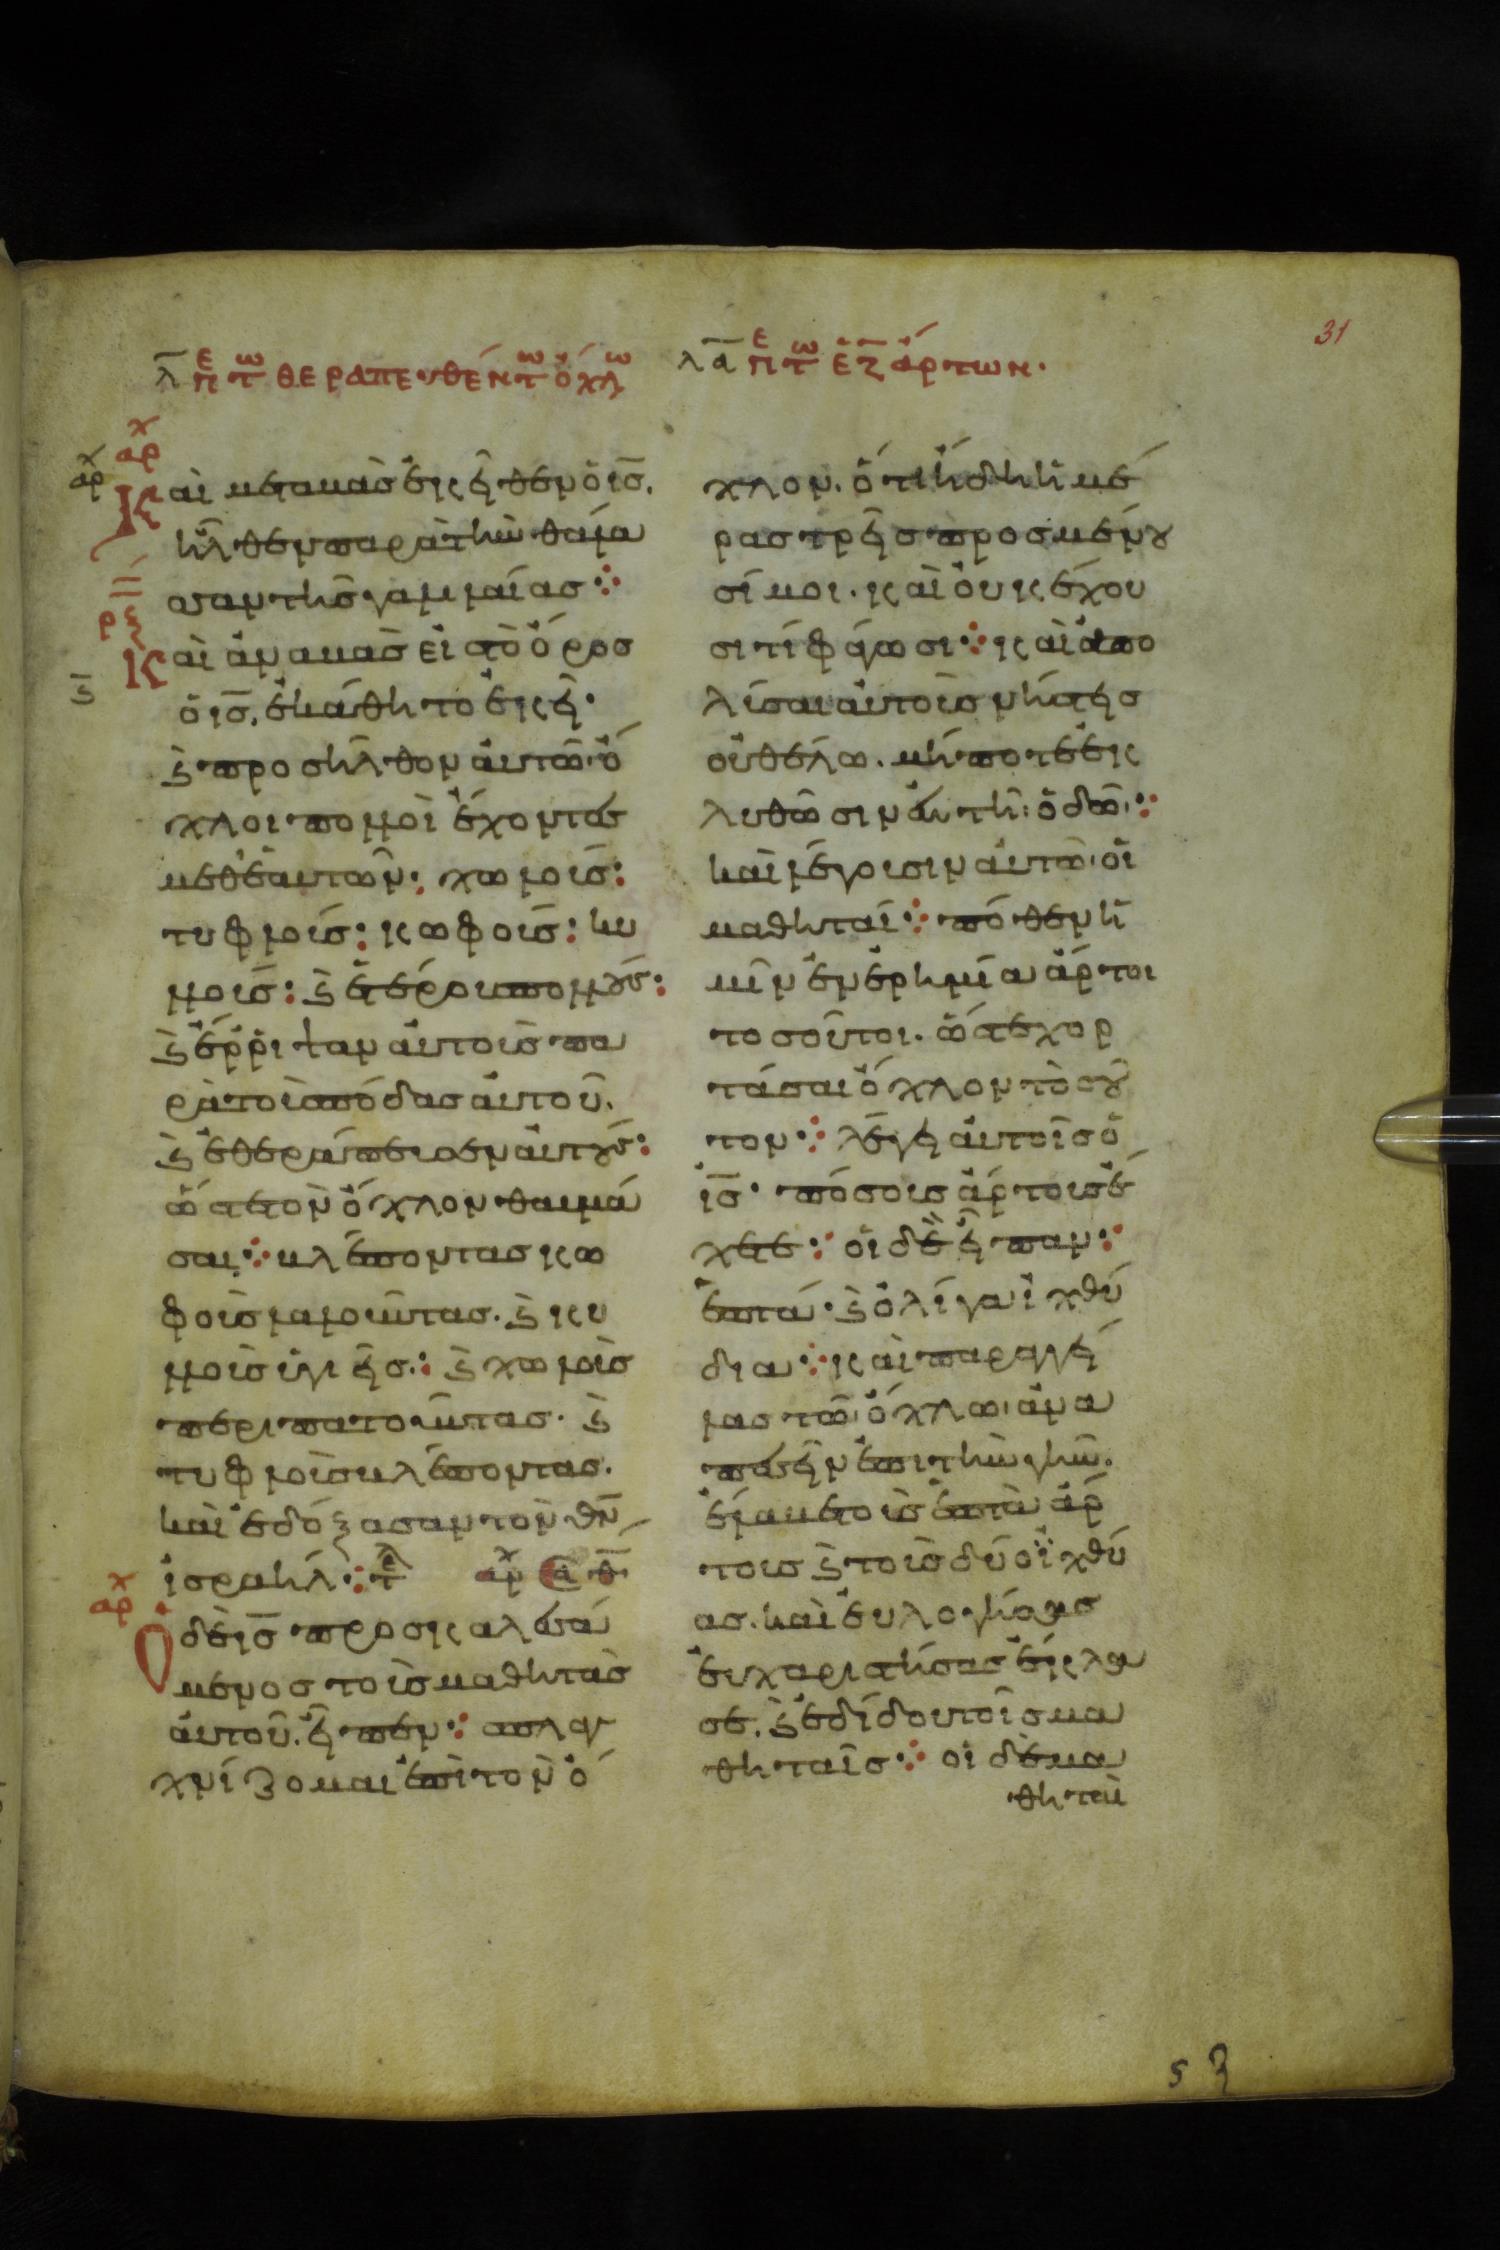 31
λ̅ πε τω θεραπευθέντω ὄχλω
λα̅ πε τω ἑζ̅ ἄρτων.
αρχ
αρχ
Και μεταβὰς ἐκεῖθεν ὁ ις̅.
ἦλθεν παρὰ τὴν θάλα
σσαν τῆς γαλιλαίας ⁘
ρξ
Και ἀναβὰς εἰς τὸ ὄρος
ὁ ις̅, ἐκάθητο ἐκεῖ·
ϛ̀ προσῆλθον αὐτῶ ὄ
χλοι πολλοὶ ἔχοντες
μεθ ἑαυτῶν: χωλούς:
τυφλούς: κωφούς: κυ
λλούς: ϛ̀ ἑτέρους πολλούς:
ϛ̀ ἔρριψαν αὐτοὺς πα
ρὰ τοὺς πόδας αὐτοῦ.
ϛ̀ ἐθεράπευσεν αὐτούς:
ὥστε τὸν ὄχλον θαυμά
σαι ⁘ βλέποντας κω
φοὺς λαλοῦντας. ϛ̀ κυ
λλοὺς ὑγιεῖς.: ϛ̀ χωλοὺς
περιπατοῦντας. ϛ̀
τυφλοὺς βλέποντας.
καὶ ἐδόξασαν τὸν θν̅
ἰσραήλ ⁘ τε αρχ
αρχ
Ὁ δὲ ις̅ προσκαλεσά
μενος τοὺς μαθητὰς
αὐτοῦ. εἶπεν ⁘ σπλαγ
χνίζομαι ἐπὶ τὸν ὄ
χλον. ὅτι ἤδη ἡμέ
ρας τρεῖς προσμένου
σί μοι. καὶ οὐκ ἔχου
σι τί φάγωσι ⁘ καὶ ἀπο
λύσαι αὐτοὺς νήστεις
οὐ θέλω. μήποτε ἐκ
λυθῶσιν ἐν τῆ ὁδῶ ⁘
καὶ λέγουσιν αὐτῶ οἱ
μαθηταί ⁘ πόθεν ἡ
μῖν ἐν ἐρημία ἄρτοι
τοσοῦτοι. ὥστε χορ
τάσαι ὄχλον τοσοῦ
τον ⁘ λέγει αὐτοῖς ὁ
ις̅· πόσους ἄρτους ἔ
χετε ⁘ οἱ δὲ εἶπαν ⁘
ἑπτά· ϛ̀ ὀλίγα ἰχθύ
δια ⁘ καὶ παραγγεί
λας τῶ ὄχλω ἀνα
πεσεῖν ἐπὶ τὴν γῆν.
ἔλαβε τοὺς ἑπτὰ ἄρ
τους ϛ̀ τοὺς δύο ἰχθύ
ας. καὶ εὐλογήσας
εὐχαριστήσας ἔκλα
σε. ϛ̀ ἐδίδου τοῖς μα
θηταῖς ⁘ οἱ δὲ μα
θηταὶ